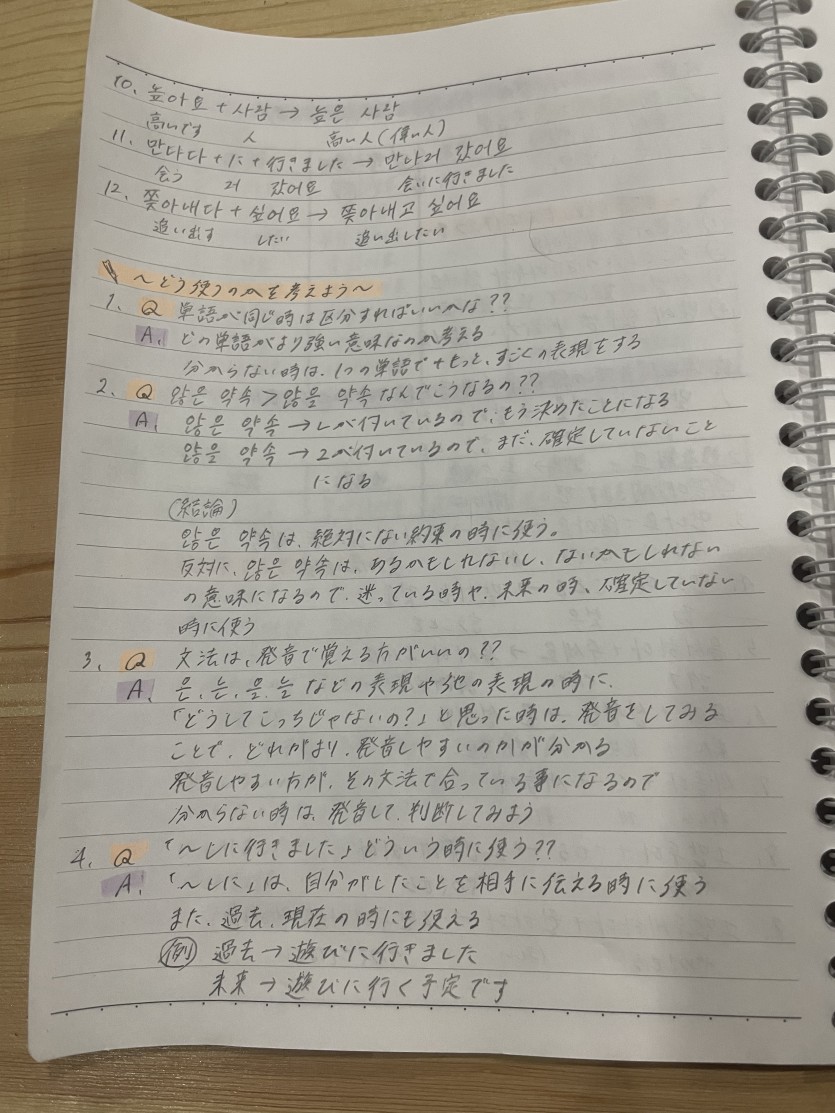 10. 높아요 + 사람 → 높은 사람
高いです 人 高い人(偉い人)
11. 만나다 + に + 行きました → 만나러 갔어요
会う 러 갔어요 会いに行きました
12. 쫓아내다 + 싶어요 → 쫓아내고 싶어요
追い出す したい 追い出したい
〜どう使うのかを考えよう〜
1. Q 単語が同じ時は区分すればいいかな??
A. どの単語がより強い意味なのか考える
分からない時は、1つの単語で+もっと、すごくの表現をする
2. Q 않은 약속 > 않을 약속 なんでこうなるの??
A. 않은 약속 → ㄴが付いているので、もう決めたことになる
않을 약속 → ㄹが付いているので、まだ、確定していないこと
になる
(結論)
않은 약속は、絶対にない約束の時に使う。
反対に、않은 약속は、あるかもしれないし、ないかもしれない
の意味になるので、迷っている時や、未来の時、不確定していない
時に使う
3. Q 文法は、発音で覚える方がいいの??
A. 은、는、을、늘 などの表現や他の表現の時に、
「どうしてこっちじゃないの?」と思った時は、発音をしてみる
ことで、どれがより、発音しやすいのかが分かる
発音しやすい方が、その文法で合っている事になるので
分からない時は、発音して、判断してみよう
4. Q 「〜しに行きました」どういう時に使う??
A. 「〜しに」は、自分がしたことを相手に伝える時に使う
また、過去、現在の時にも使える
例 過去 → 遊びに行きました
未来 → 遊びに行く予定です